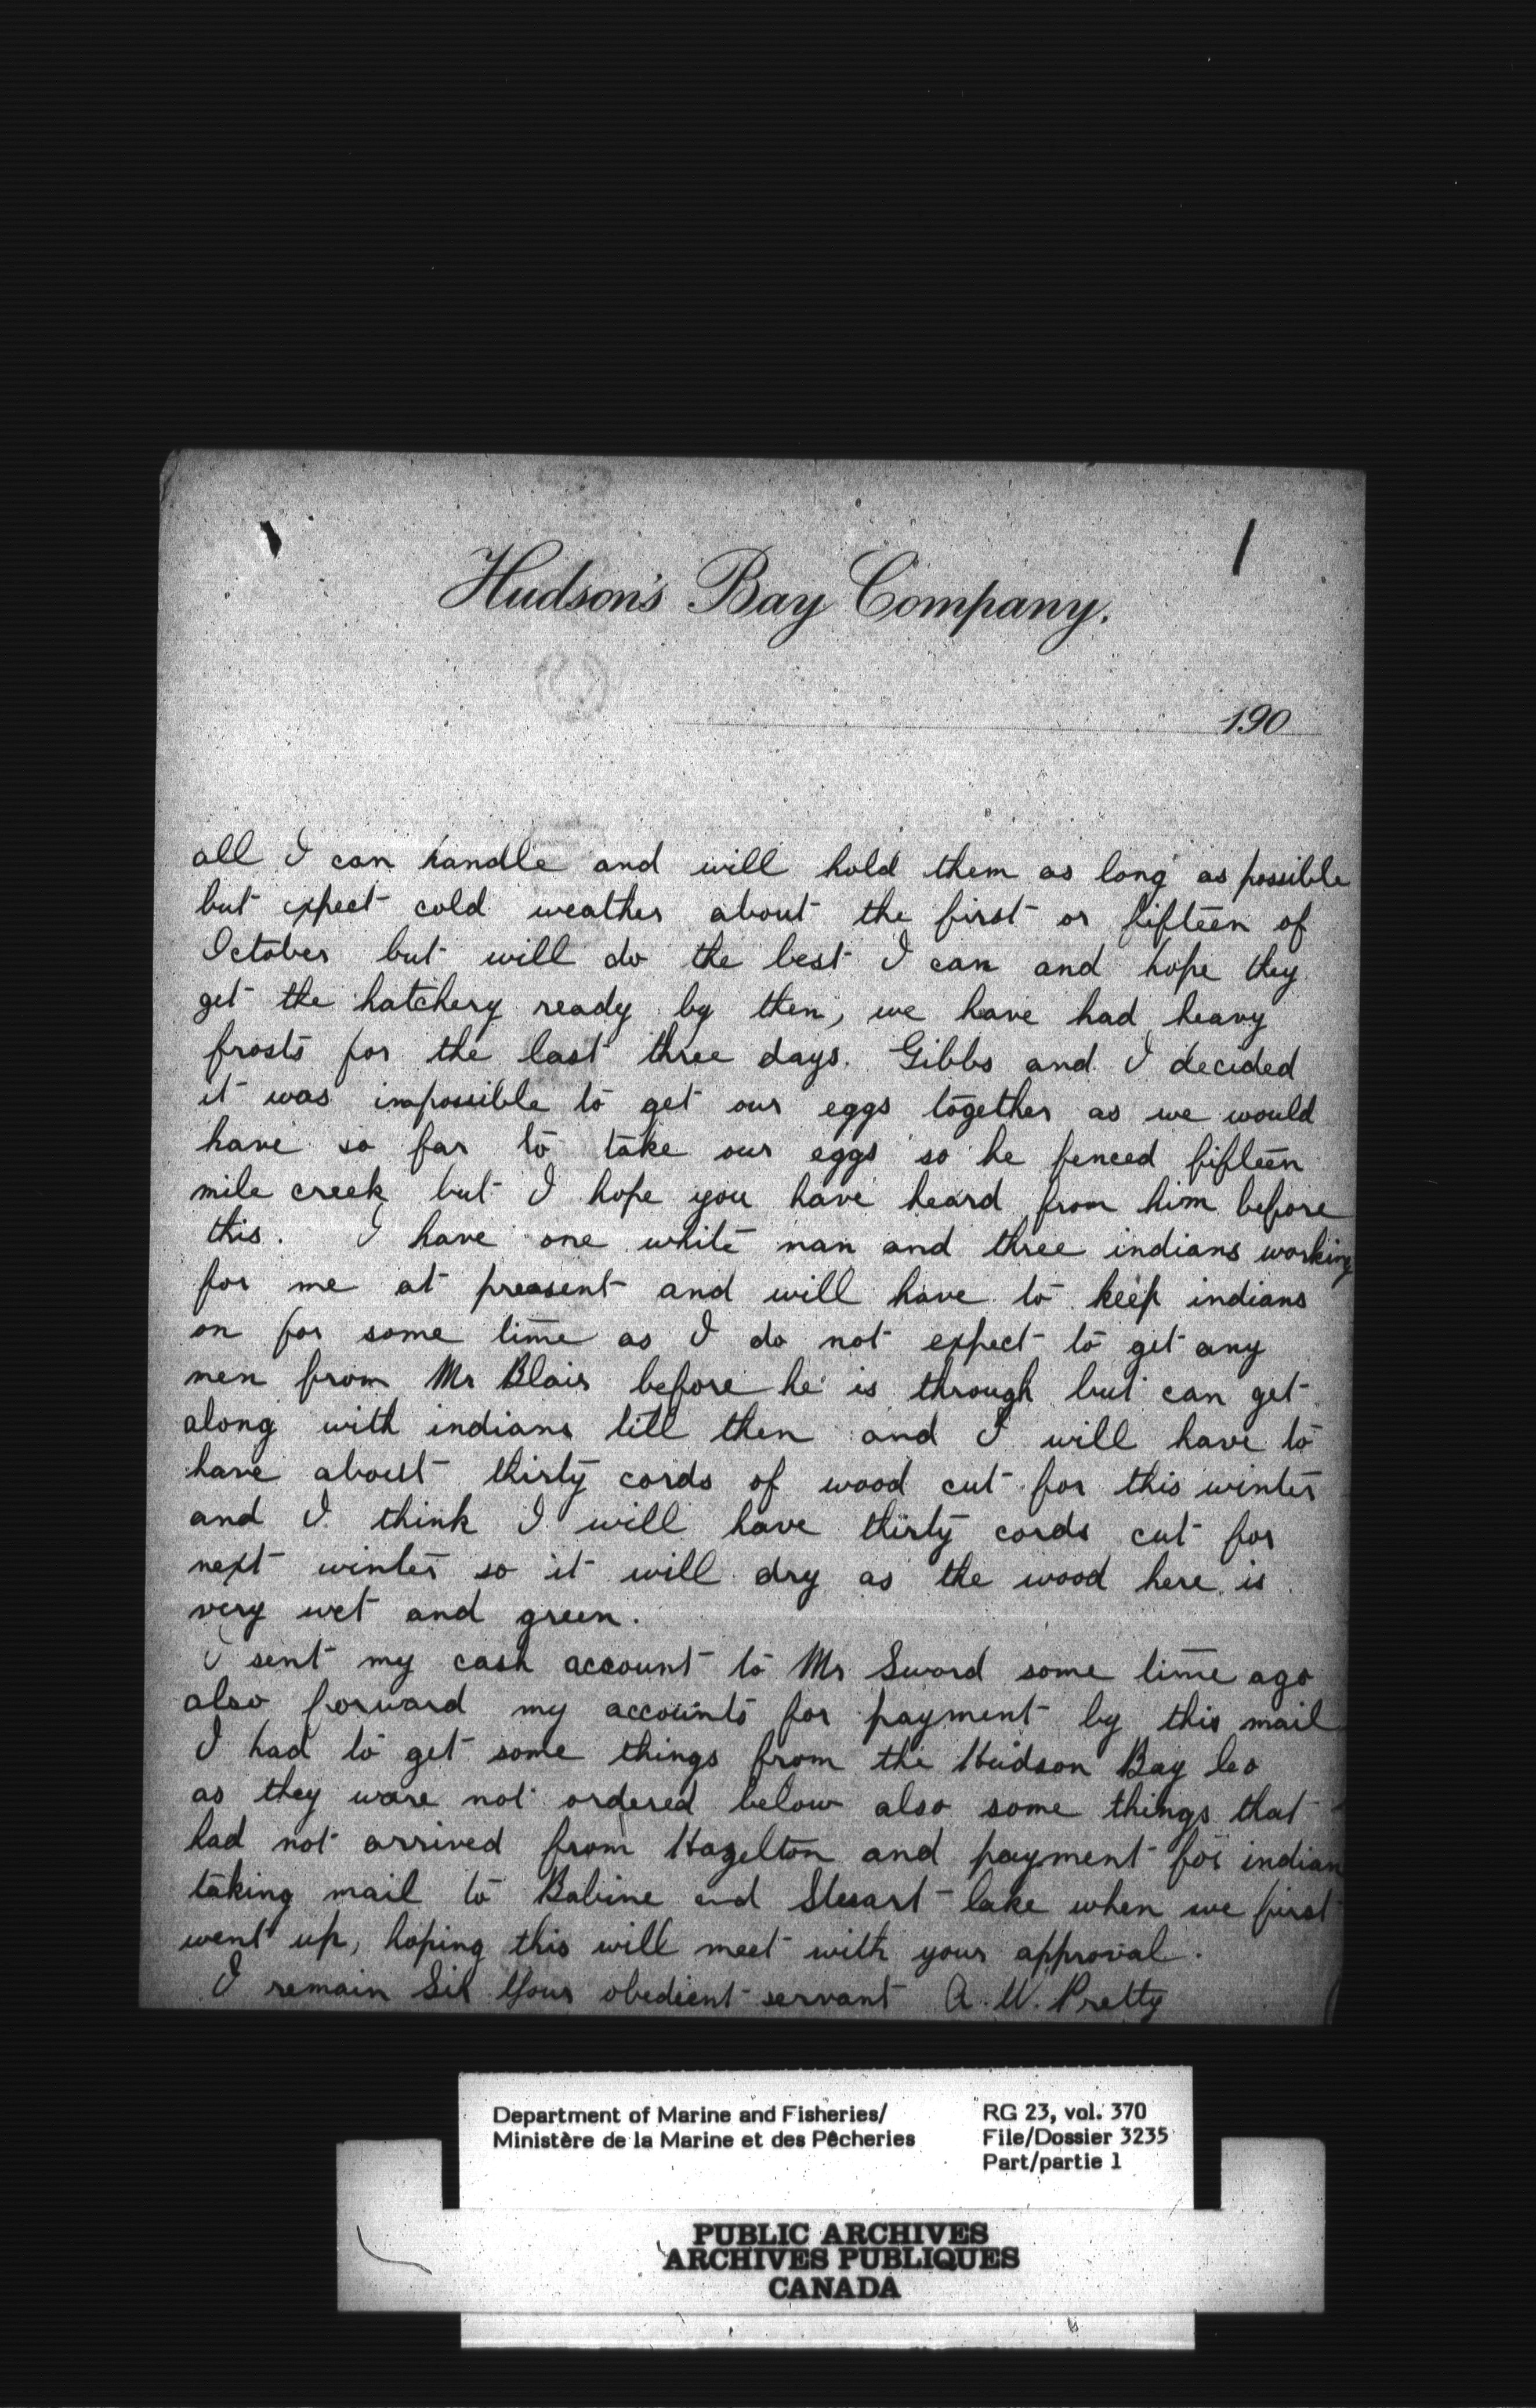 Hudson's Bay Company.
190
all I can handle and will hold them as long as possible
but expect cold weather about the first or fifteen of
October but will do the best I can and hope they
get the hatchery ready by then, we have had heavy
frosts for the last three days. Gibbs and I decided
it was impossible to get our eggs together as we would
have so far to take our eggs so he fenced fifteen
mile creek but I hope you have heard from him before
this. I have one white man and three indians working
for me at preasent and will have to keep indians
on for some time as I do not expect to get any
men from Mr Blair before he is through but can get
along with indians till then and I will have to
have about thirty cords of wood cut for this winter
and I think I will have thirty cords cut for
next winter so it will dry as the wood here is
very wet and green.
I sent my cash account to Mr Sword some time ago
also forward my accounts for payment by this mail
I had to get some things from the Hudson Bay Co
as they ware not ordered below also some things that
had not arrived from Hazelton and payment for indian
taking mail to Babine and Stuart lake when we first
went up, hoping this will meet with your approval.
I remain Sir Your obedient servant A. W. Pretty
Department of Marine and Fisheries/
Ministère de la Marine et des Pêcheries
RG 23, vol. 370
File/Dossier 3235
Part/partie 1
PUBLIC ARCHIVES
ARCHIVES PUBLIQUES
CANADA